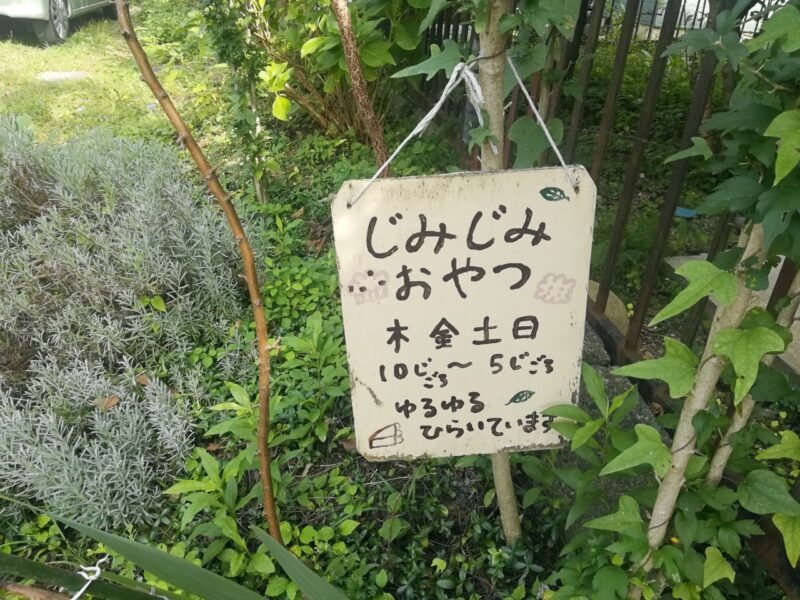 じみじみ
おやつ
木金土日
10じごろ〜5じごろ
ゆるゆる
ひらいています